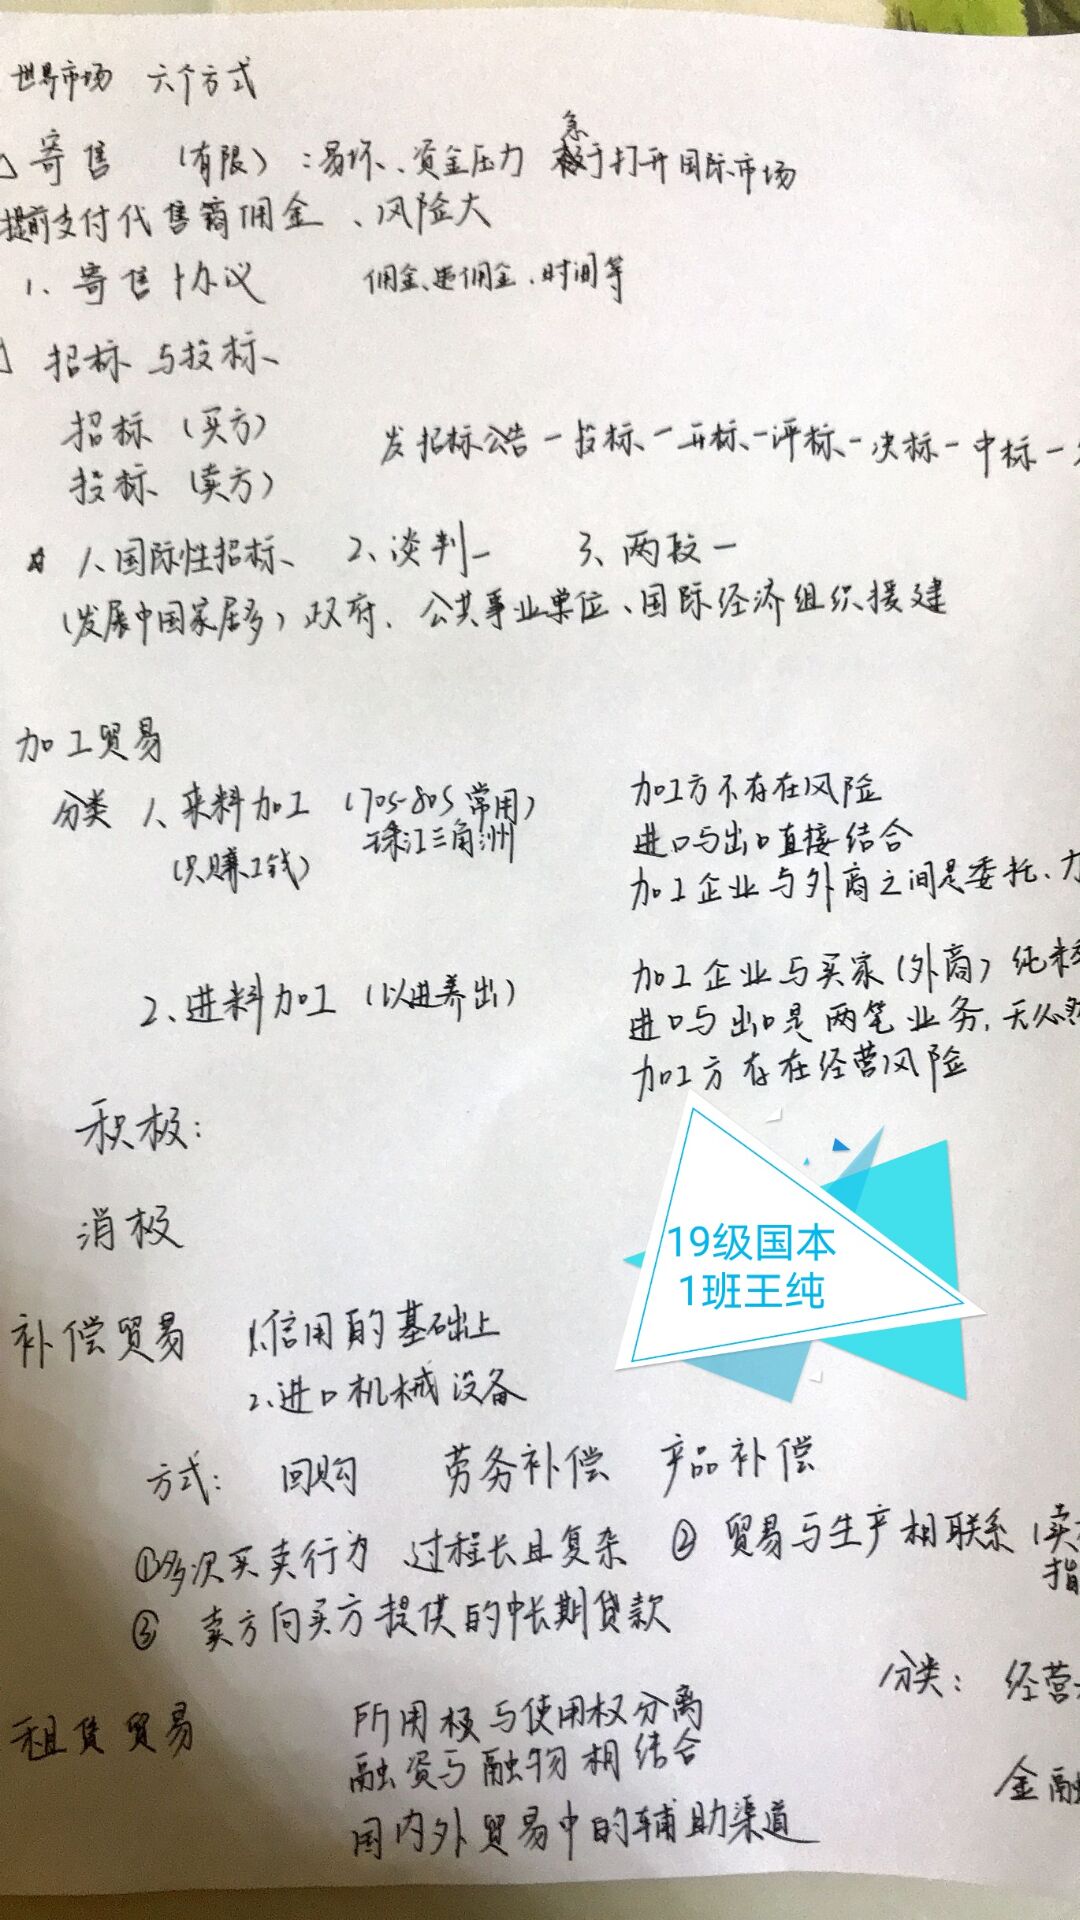 世界市场 六个方式
寄售 （有限）：易坏、资金压力 急于打开国际市场
提前支付代售商佣金、风险大
1、寄售协议 佣金、退佣金、时间等
招标与投标
招标（买方）
投标（卖方）
发招标公告－投标－开标－评标－决标－中标－
1、国际性招标、 2、谈判－ 3、两段－
（发展中国家居多）政府、公共事业单位、国际经济组织援建
加工贸易
分类 1、来料加工（70s-80s常用）
珠江三角洲
（只赚工钱）
加工方不存在风险
进口与出口直接结合
加工企业与外商之间是委托、
2、进料加工（以进养出）
加工企业与买家（外商）纯
进口与出口是两笔业务，无必
加工方存在经营风险
积极：
消极
19级国本
1班王纯
补偿贸易 1.信用的基础上
2、进口机械设备
方式： 回购 劳务补偿 产品补偿
①多次买卖行为 过程长且复杂 ② 贸易与生产相联系（卖
指
③ 卖方向买方提供的中长期贷款
分类： 经营
租赁贸易 所用权与使用权分离
融资与融物相结合
金融
国内外贸易中的辅助渠道